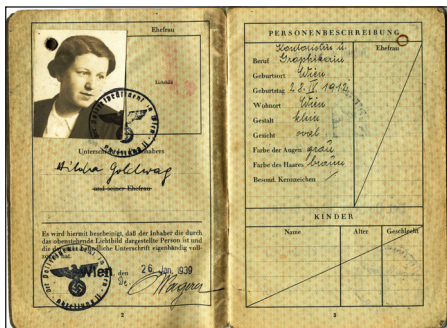 Ehefrau
Unterschrift des Inhabers
Hilda Goldwag
und seiner Ehefrau
Es wird hiermit bescheinigt, daß der Inhaber die durch
das obenstehende Lichtbild dargestellte Person ist und
die darunter befindliche Unterschrift eigenhändig voll-
zogen hat.
Wien, den 26. Jan. 1939
Der Polizeipräsident in Wien
Abteilung II
Wagner
2
PERSONENBESCHREIBUNG
Kontoristin u. Ehefrau
Beruf Graphikerin
Geburtsort Wien
Geburtstag 28. IV 1912
Wohnort Wien
Gestalt klein
Gesicht oval
Farbe der Augen grau
Farbe des Haares braun
Besond. Kennzeichen /
KINDER
Name Alter Geschlecht
3